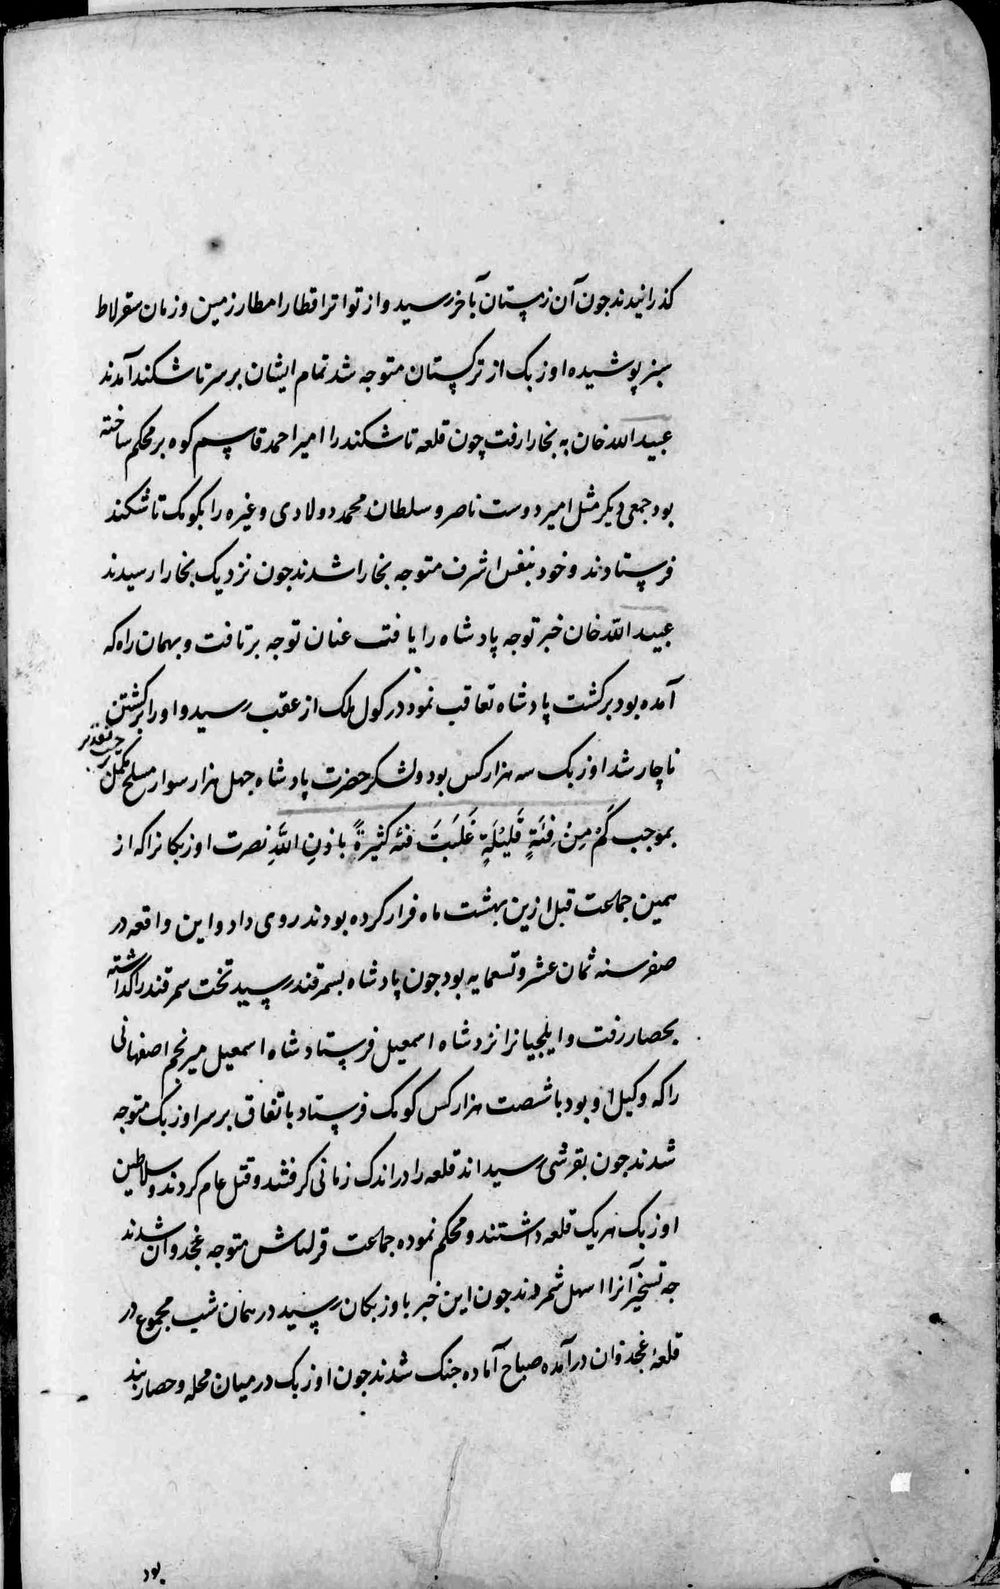 کذرانیدند جون آن زمستان بآخر رسید و از تواتر اقطار امطار زمین و زمان سقرلاط
سبز پوشیده اوزبک از ترکستان متوجه شد تمام ایشان بر سر تاشکند آمدند
عبید الله خان به بخارا رفت چون قلعه تاشکند را امیر احمد قاسم کوه بر محکم ساخته
بود جمعی دیکر مثل امیر دوست ناصر و سلطان محمد دولادی و غیره را بکومک تاشکند
فرستادند و خود بنفس اشرف متوجه بخارا شدند جون نزدیک بخارا رسیدند
عبید الله خان خبر توجه پادشاه را یافت عنان توجه برتافت و بهمان راه که
آمده بود برکشت پادشاه تعاقب نمود در کول ملک از عقب رسید و او را برکشتن
ناچار شد اوزبک سه هزار کس بود ولشکر حضرت پادشاه جهل هزار سوار مسلح مکمل
بموجب کَمْ مِنْ فِئَةٍ قَلِيْلَةٍ غَلَبَتَ فئه کَثيرةً باذنِ اللَّهِ نصرت اوزبکانرا که از
همین جماعت قبل ازین بهشت ماه فرار کرده بودند روی داد و این واقعه در
صفر سنه ثمان عشر و تسعمایه بود جون پادشاه بسمرقند رسید تخت سمرقند را کذاشته
بحصار رفت و ایلجیانرا نزد شاه اسمعیل فرستاد شاه اسمعیل میر نجم اصفهانی
را که وکیل او بود با شصت هزار کس کومک فرستاد باتفاق بر سر اوزبک متوجه
شدند جون بقرشی رسیداند قلعه را در اندک زمانی کرفتند و قتل عام کردند و سلاطین
اوزبک هریک قلعه داشتند و محکم نموده جماعت قزلباش متوجه غجدوان شدند
جه تسخیر آنرا اسهل شمردند جون این خبر باوزبکان رسید در همان شب مجموع در
قلعهٔ غجدوان درآمده صباح آماده جنک شدند جون اوزبک در میان محله و حصار بند
بود